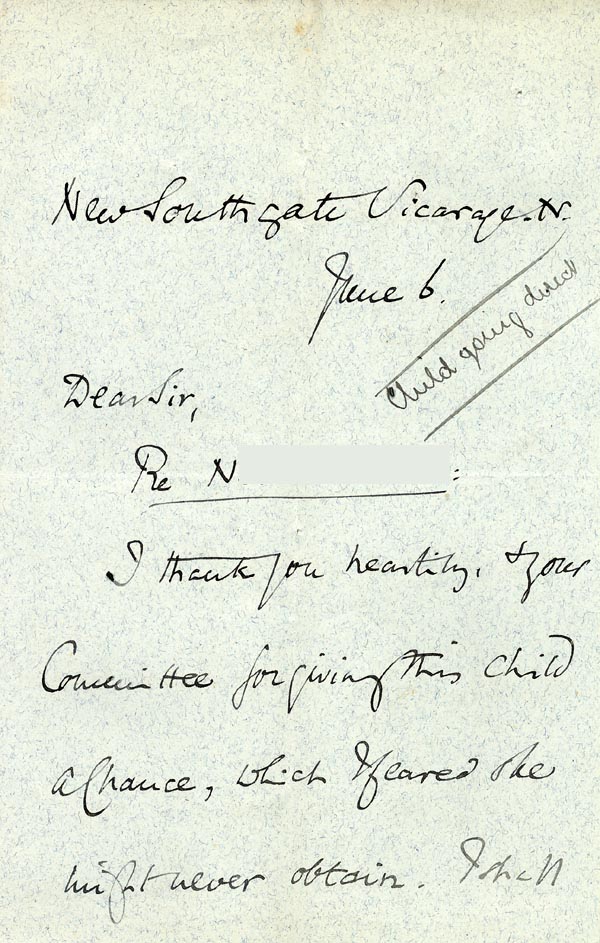 New Southgate Vicarage. N.
June 6.
Child going direct
Dear Sir,
Re N :
I thank you heartily, & your
Committee for giving this child
a chance, which I feared she
might never obtain. I shall